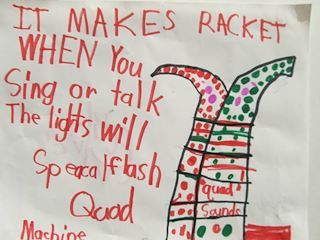 IT MAKES RACKET
WHEN You
Sing or talk
The lights will
Speacal flash
Quad
Machine
quad
Sounds